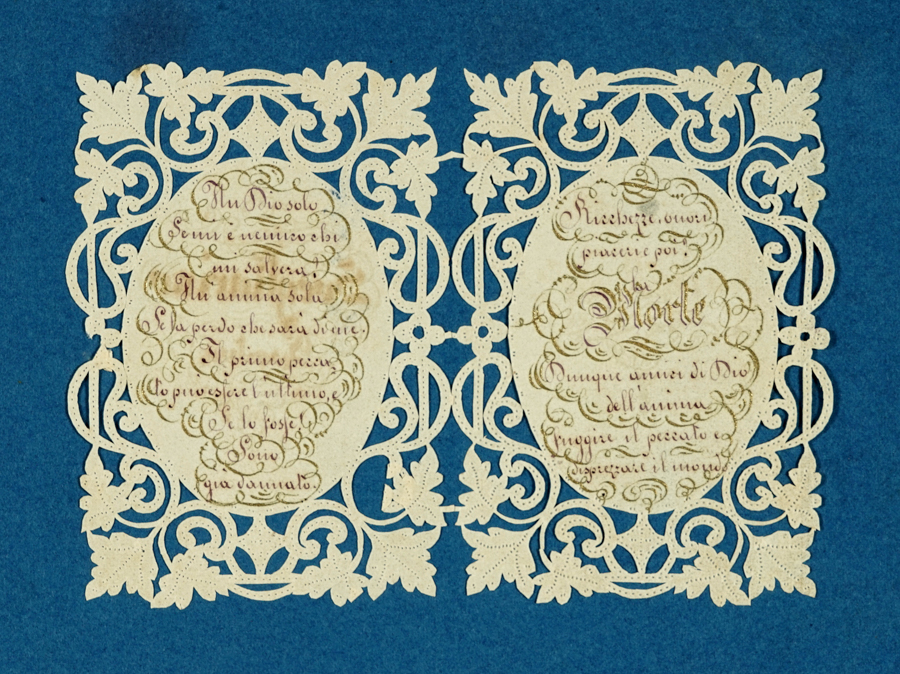 Un Dio solo
Se mi è nemico chi
mi salverà!
Un'anima sola
Se la perdo che sarà di me
Il primo pecca
to può essere l'ultimo, e
Se lo fosse!
Sono
già dannato.
Ricchezze, onori
piaceri e poi?
La
Morte
Dunque amor di Dio
dell'anima
fuggire il peccato e
disprezzare il mondo